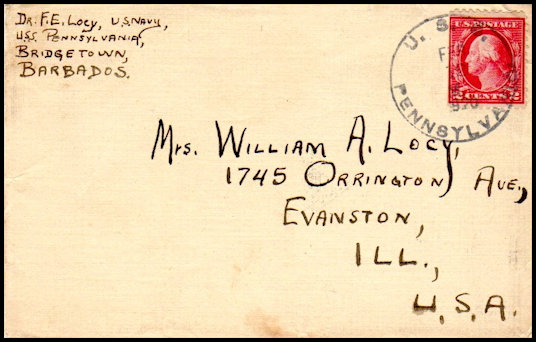 Dr. F.E. Locy, U.S. Navy,
USS Pennsylvania,
Bridgetown,
Barbados.
U.S. POSTAGE
2 CENTS 2
U. S.
PENNSYLVA
Mrs. William A. Locy,
1745 Orrington Ave.,
Evanston,
Ill.,
U.S.A.